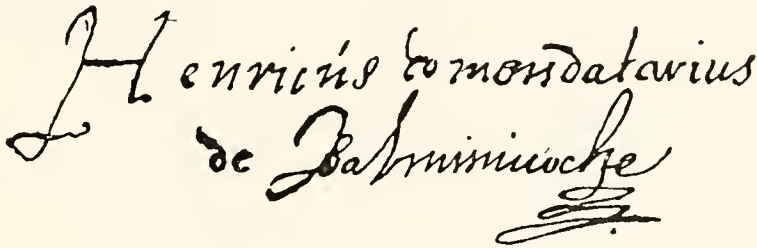 Henricús Comendatarius
de Balmirinoche